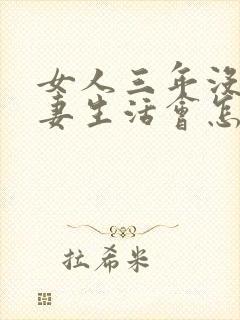 女人三年没
妻生活會怎
拉希米